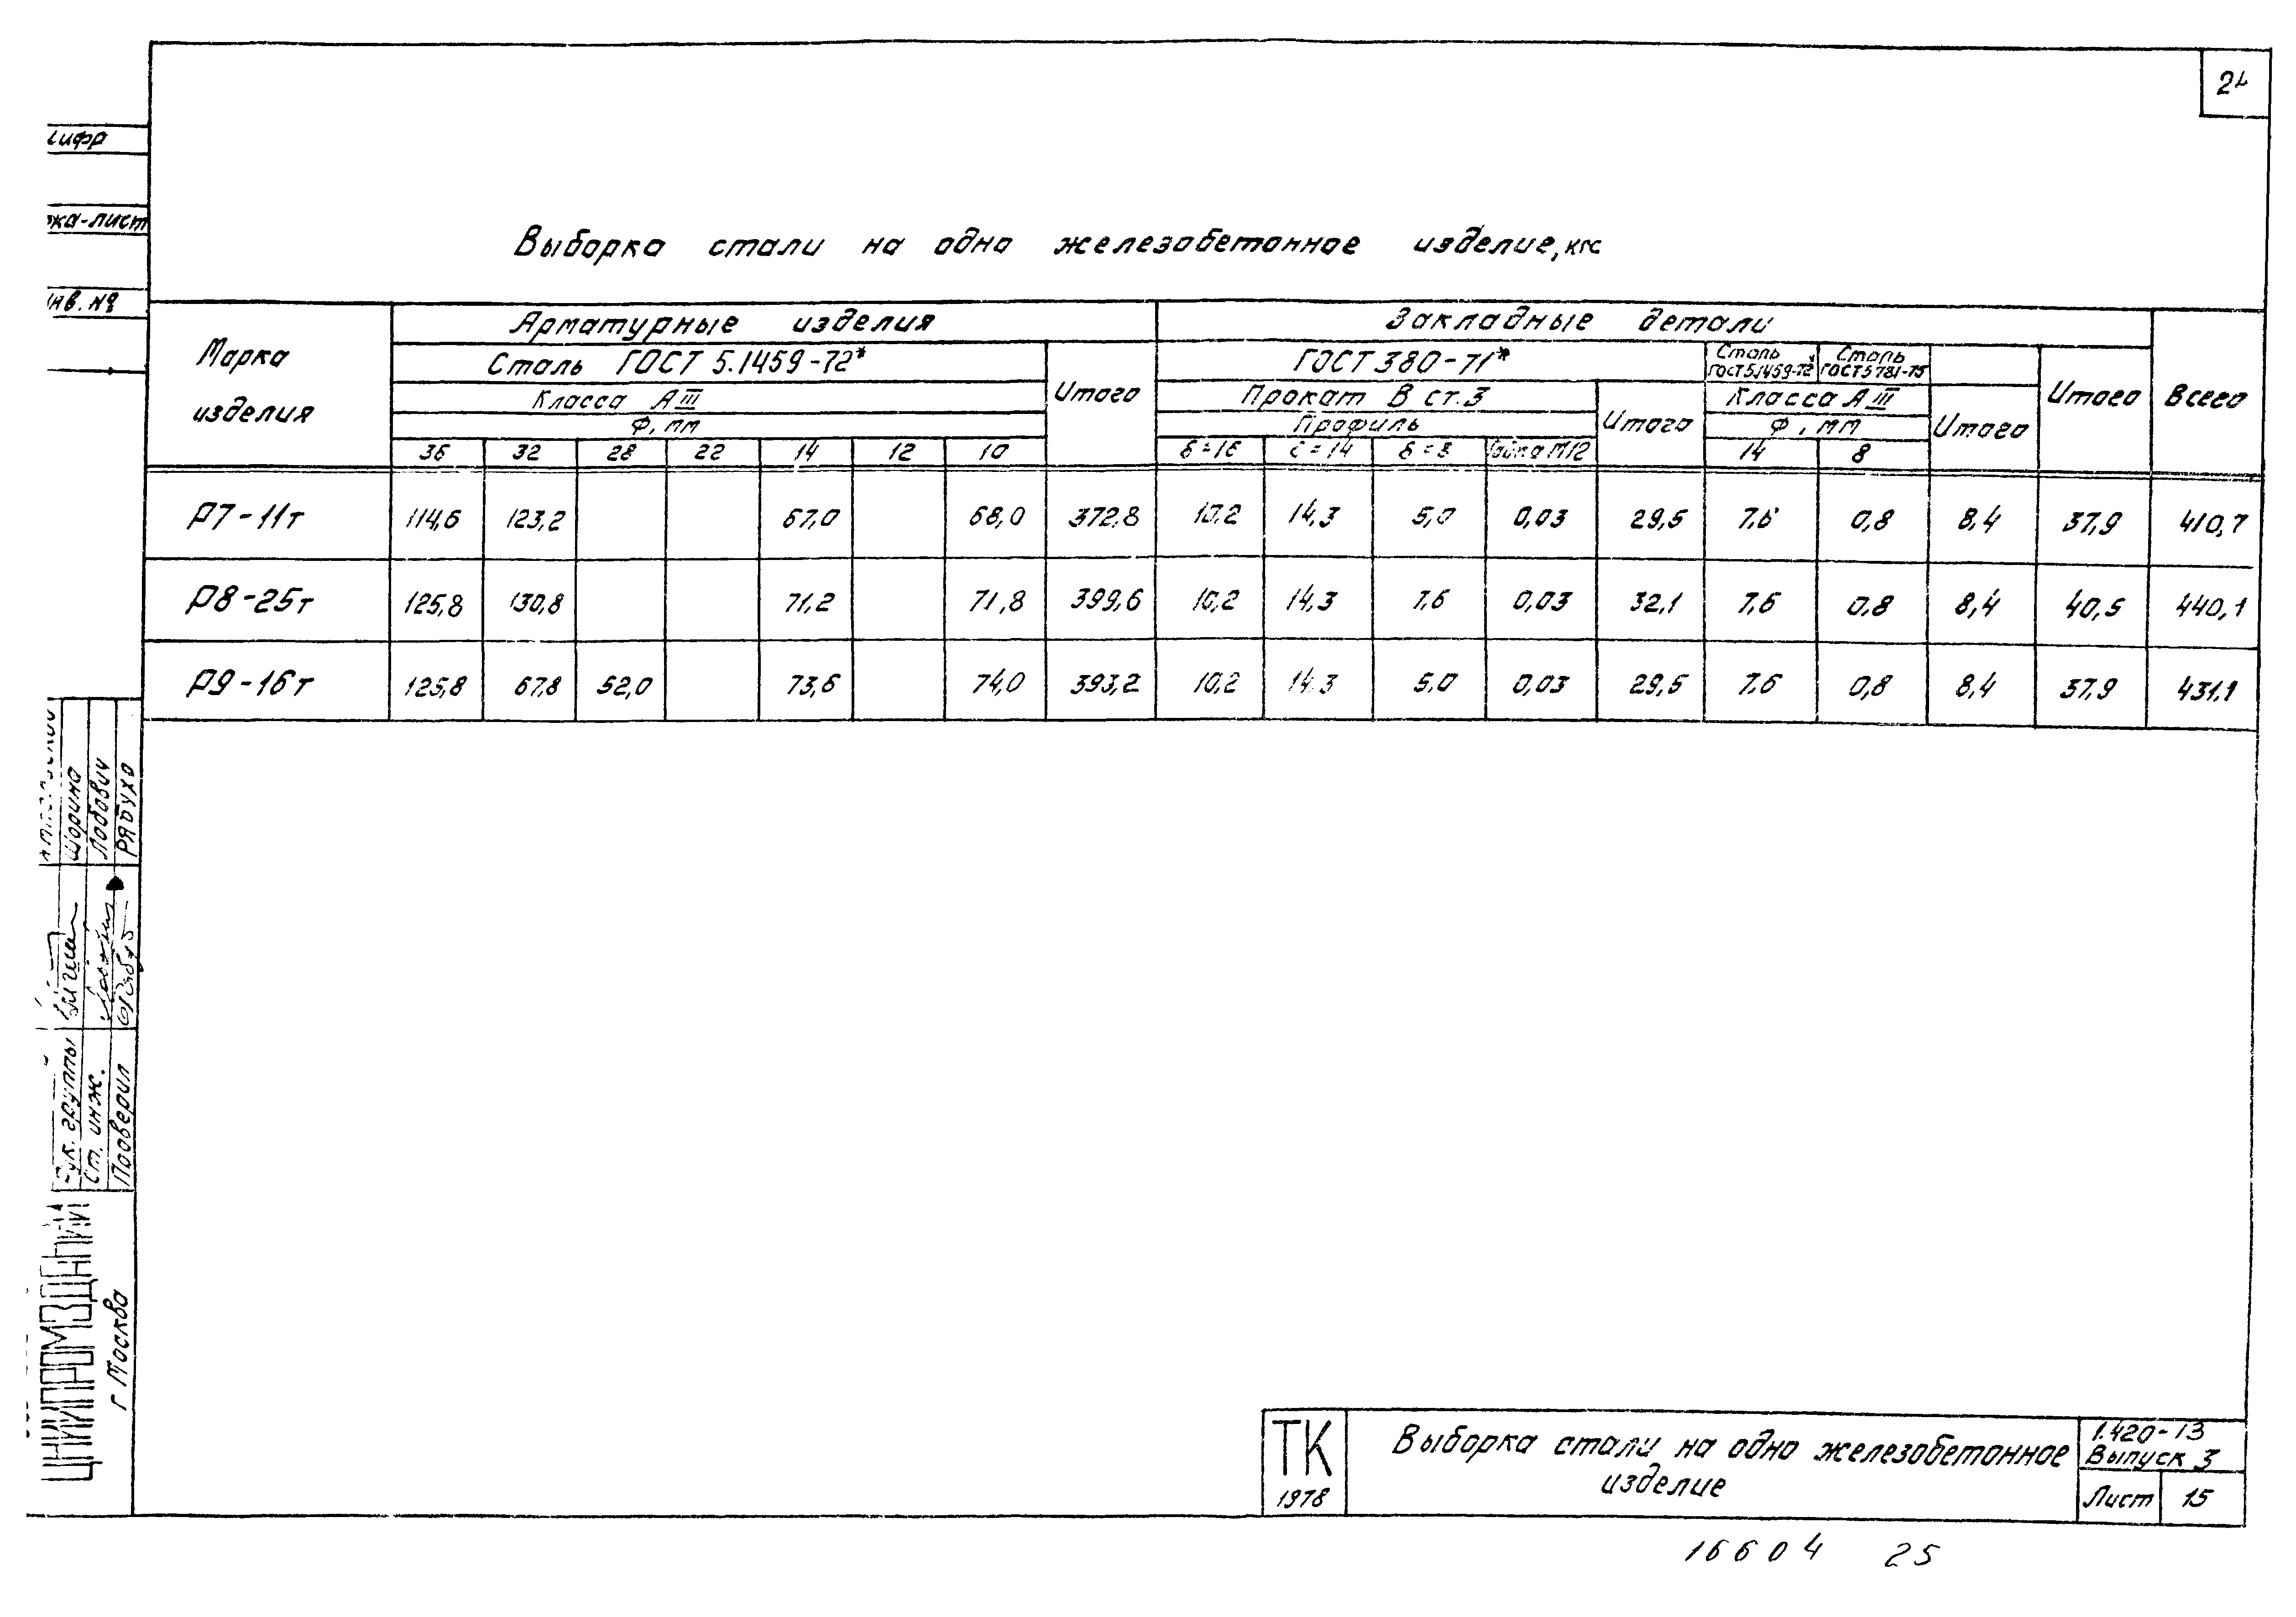 24
Выборка стали на одно железобетонное изделие, кгс
Марка изделия
Арматурные изделия
Закладные детали
Всего
Сталь ГОСТ 5.1459-72*
Итого
ГОСТ 380-71*
Сталь ГОСТ 5.1459-72*
Сталь ГОСТ 5781-75
Итого
Класса А III
Прокат В ст.3
Итого
Класса А III
Итого
Ф, мм
Профиль
Ф, мм
36 32 28 22 14 12 10
δ=16 δ=14 δ=8 Гайка М12
14 8
Р7-11т 114,6 123,2 67,0 68,0 372,8 10,2 14,3 5,0 0,03 29,5 7,6 0,8 8,4 37,9 410,7
Р8-25т 125,8 130,8 71,2 71,8 399,6 10,2 14,3 7,6 0,03 32,1 7,6 0,8 8,4 40,5 440,1
Р9-16т 125,8 67,8 52,0 73,6 74,0 393,2 10,2 14,3 5,0 0,03 29,5 7,6 0,8 8,4 37,9 431,1
инв. №
Шорина
Лобович
Рябухо
Рук. группы
Ст. инж.
Проверил
ЦНИИПРОМЗДАНИЙ
г Москва
ТК
1978
Выборка стали на одно железобетонное
изделие
1.420-13
Выпуск 3
Лист 15
16604 25